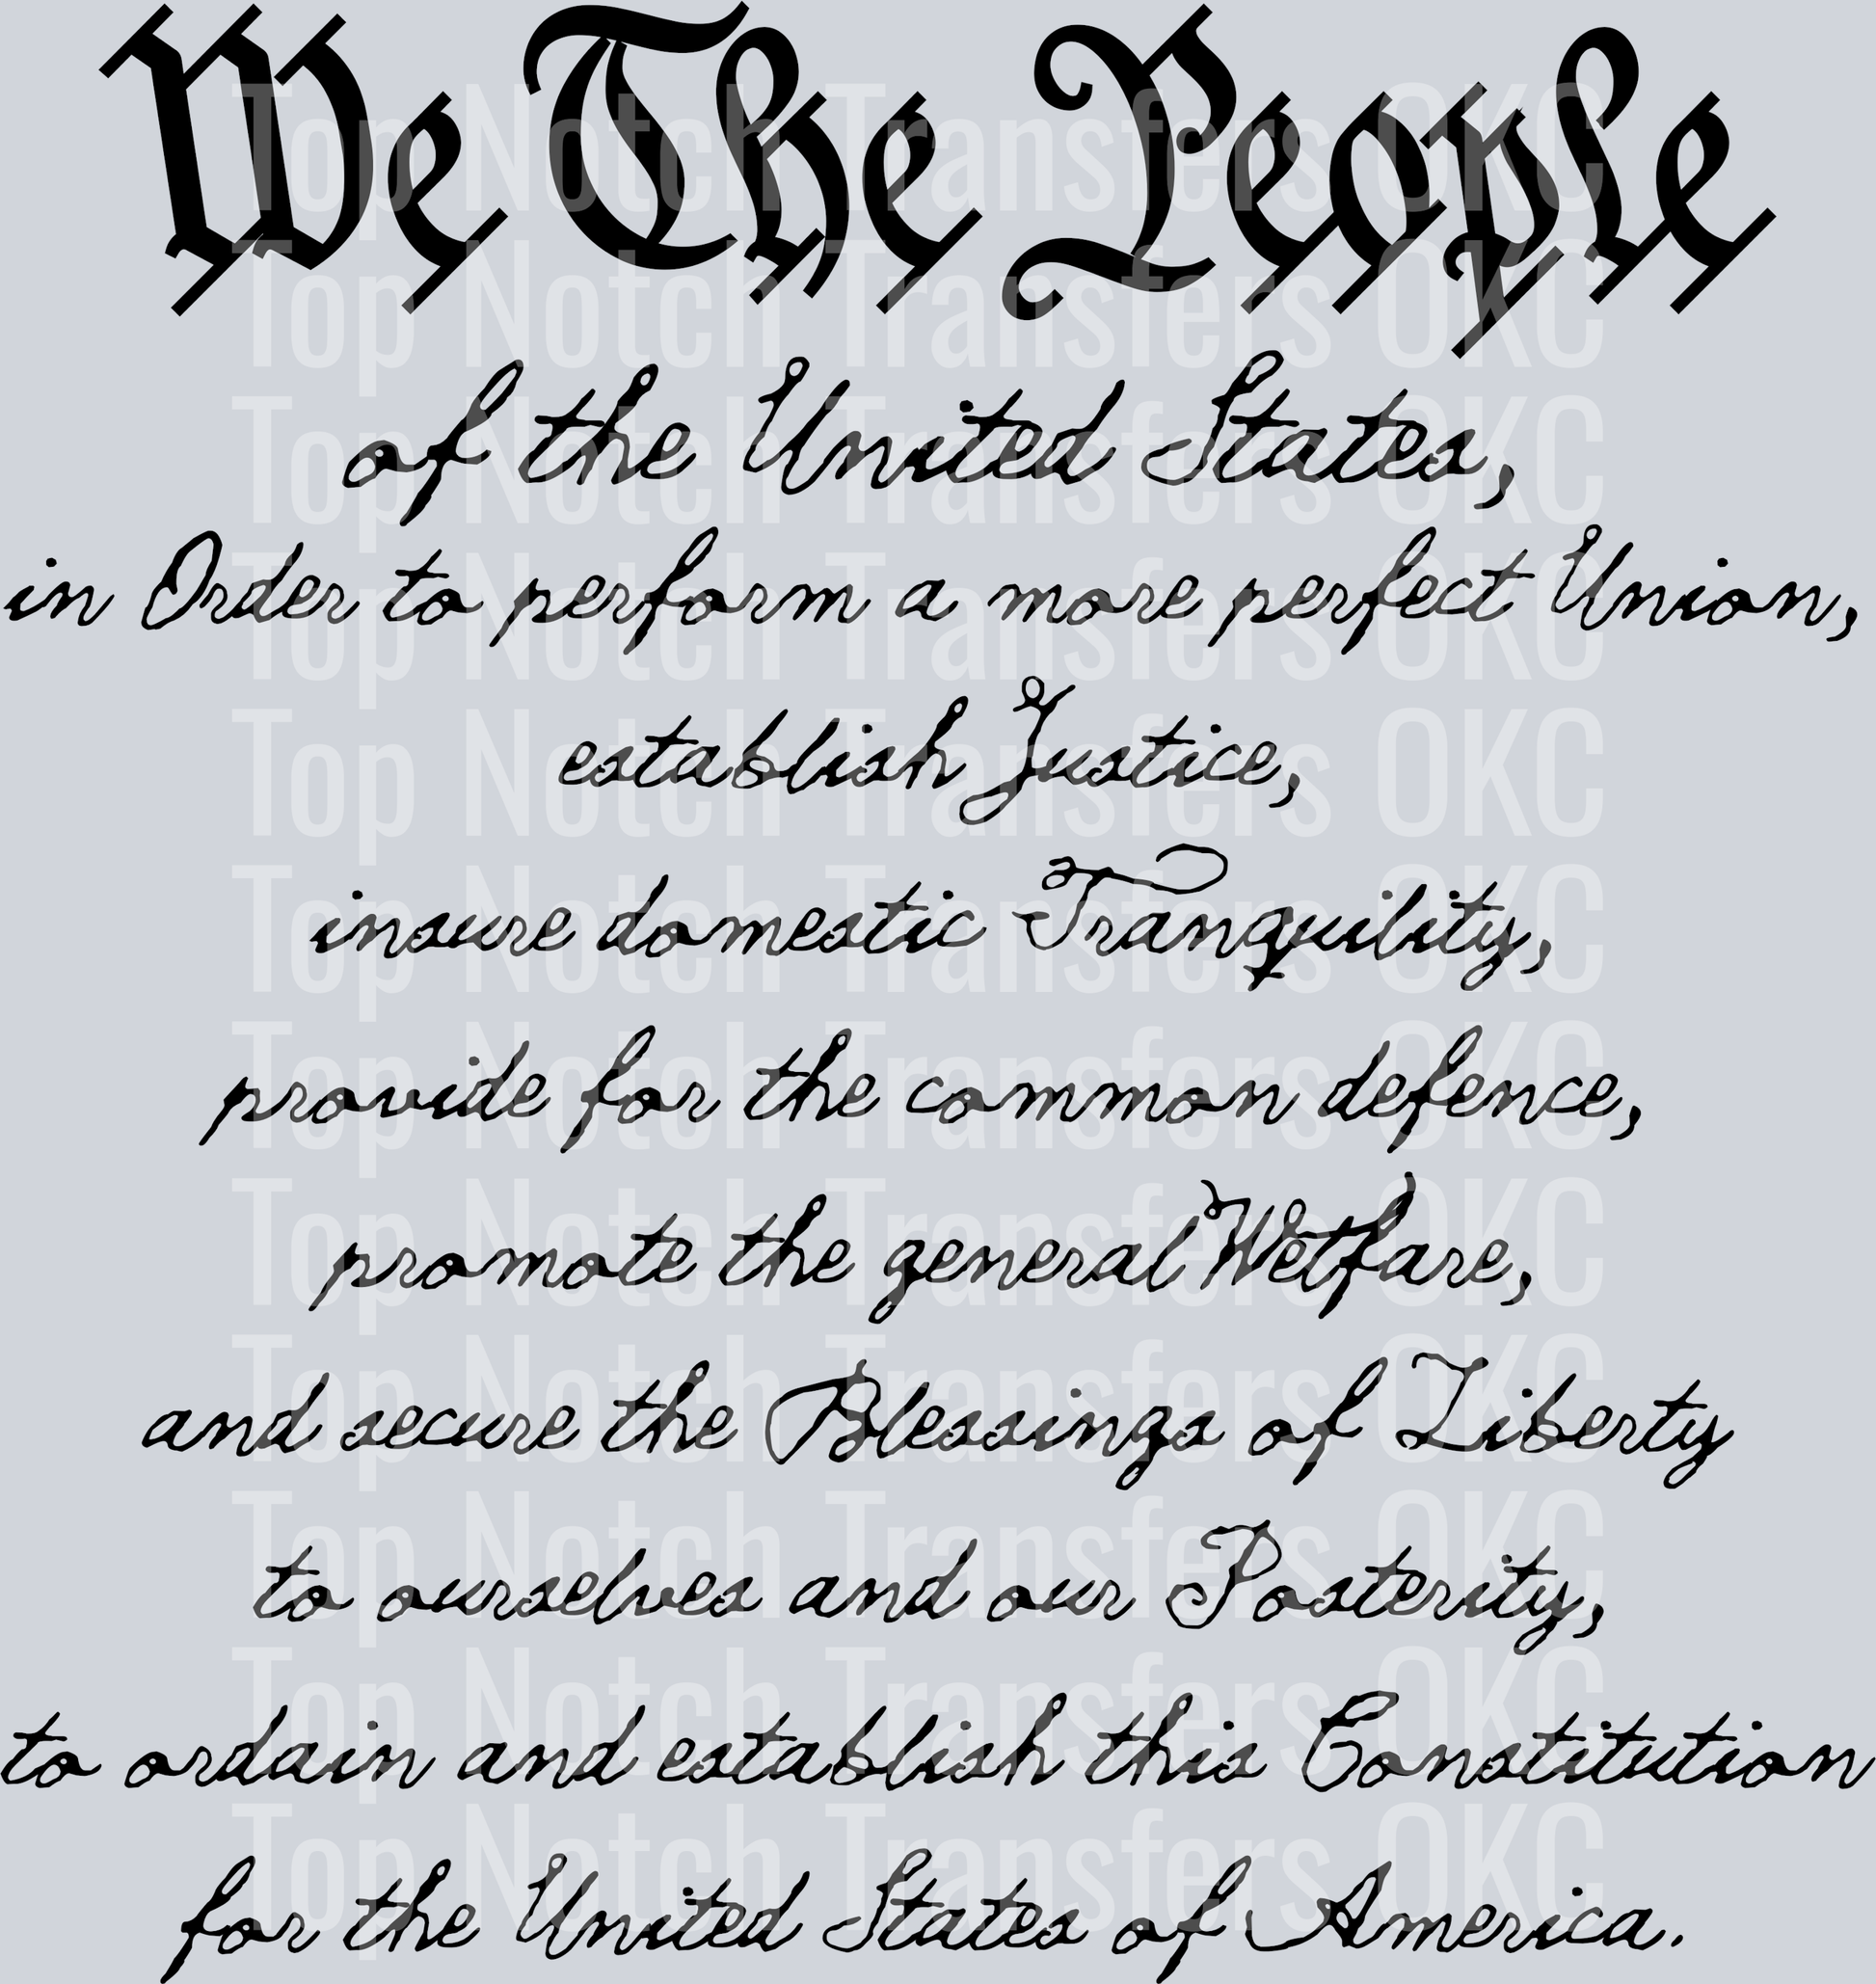 We The People
of the United States,
in Order to perform a more perfect Union,
establish Justice,
insure domestic Tranquility,
provide for the common defence,
promote the general Welfare,
and secure the Blessings of Liberty
to ourselves and our Posterity,
to ordain and establish this Constitution
for the United States of America.
Top Notch Transfers OKC
Top Notch Transfers OKC
Top Notch Transfers OKC
Top Notch Transfers OKC
Top Notch Transfers OKC
Top Notch Transfers OKC
Top Notch Transfers OKC
Top Notch Transfers OKC
Top Notch Transfers OKC
Top Notch Transfers OKC
Top Notch Transfers OKC
Top Notch Transfers OKC